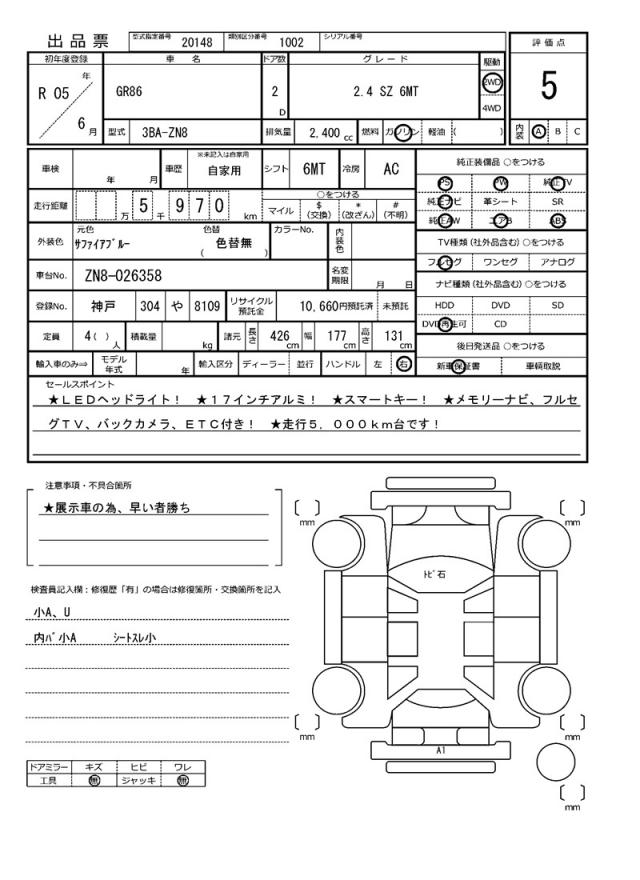 出品票
型式指定番号 20148 類別区分番号 1002 シリアル番号
評価点
初年度登録 車名 ドア数 グレード 駆動
R 05 年 6 月 GR86 2 D 2.4 SZ 6MT 2WD 4WD
5
型式 3BA-ZN8 排気量 2,400 cc 燃料 ガソリン 軽油 ( )
内装 A B C
車検 年 月 車歴 ※未記入は自家用 自家用 シフト 6MT 冷房 AC
走行距離 万 5 千 9 7 0 km
○をつける
マイル $(交換) *(改ざん) #(不明)
外装色 元色 サファイアブルー 色替 ( 色替無 )
カラーNo. 内装色
車台No. ZN8-026358 名変期限 月 日
登録No. 神戸 304 や 8109 リサイクル預託金 10,660円預託済 未預託
定員 4( )人 積載量 kg 諸元 長さ 426cm 幅 177cm 高さ 131cm
輸入車のみ⇒ モデル年式 年 輸入区分 ディーラー 並行 ハンドル 左 右
純正装備品 ○をつける
PS PW 純正TV
純正ナビ 革シート SR
純正AW エアB ABS
TV種類(社外品含む)○をつける
フルセグ ワンセグ アナログ
ナビ種類(社外品含む)○をつける
HDD DVD SD
DVD再生可 CD
後日発送品 ○をつける
新車保証書 車輌取説
セールスポイント
★LEDヘッドライト! ★17インチアルミ! ★スマートキー! ★メモリーナビ、フルセ
グTV、バックカメラ、ETC付き! ★走行5,000km台です!
注意事項・不具合箇所
★展示車の為、早い者勝ち
検査員記入欄:修復歴「有」の場合は修復箇所・交換箇所を記入
小A、U
内バ小A シートスレ小
ドアミラー キズ ヒビ ワレ
工具 無 ジャッキ 無
[ ] mm
[ ] mm
トビ石
[ ] mm
[ ] mm
A1
[ ] mm